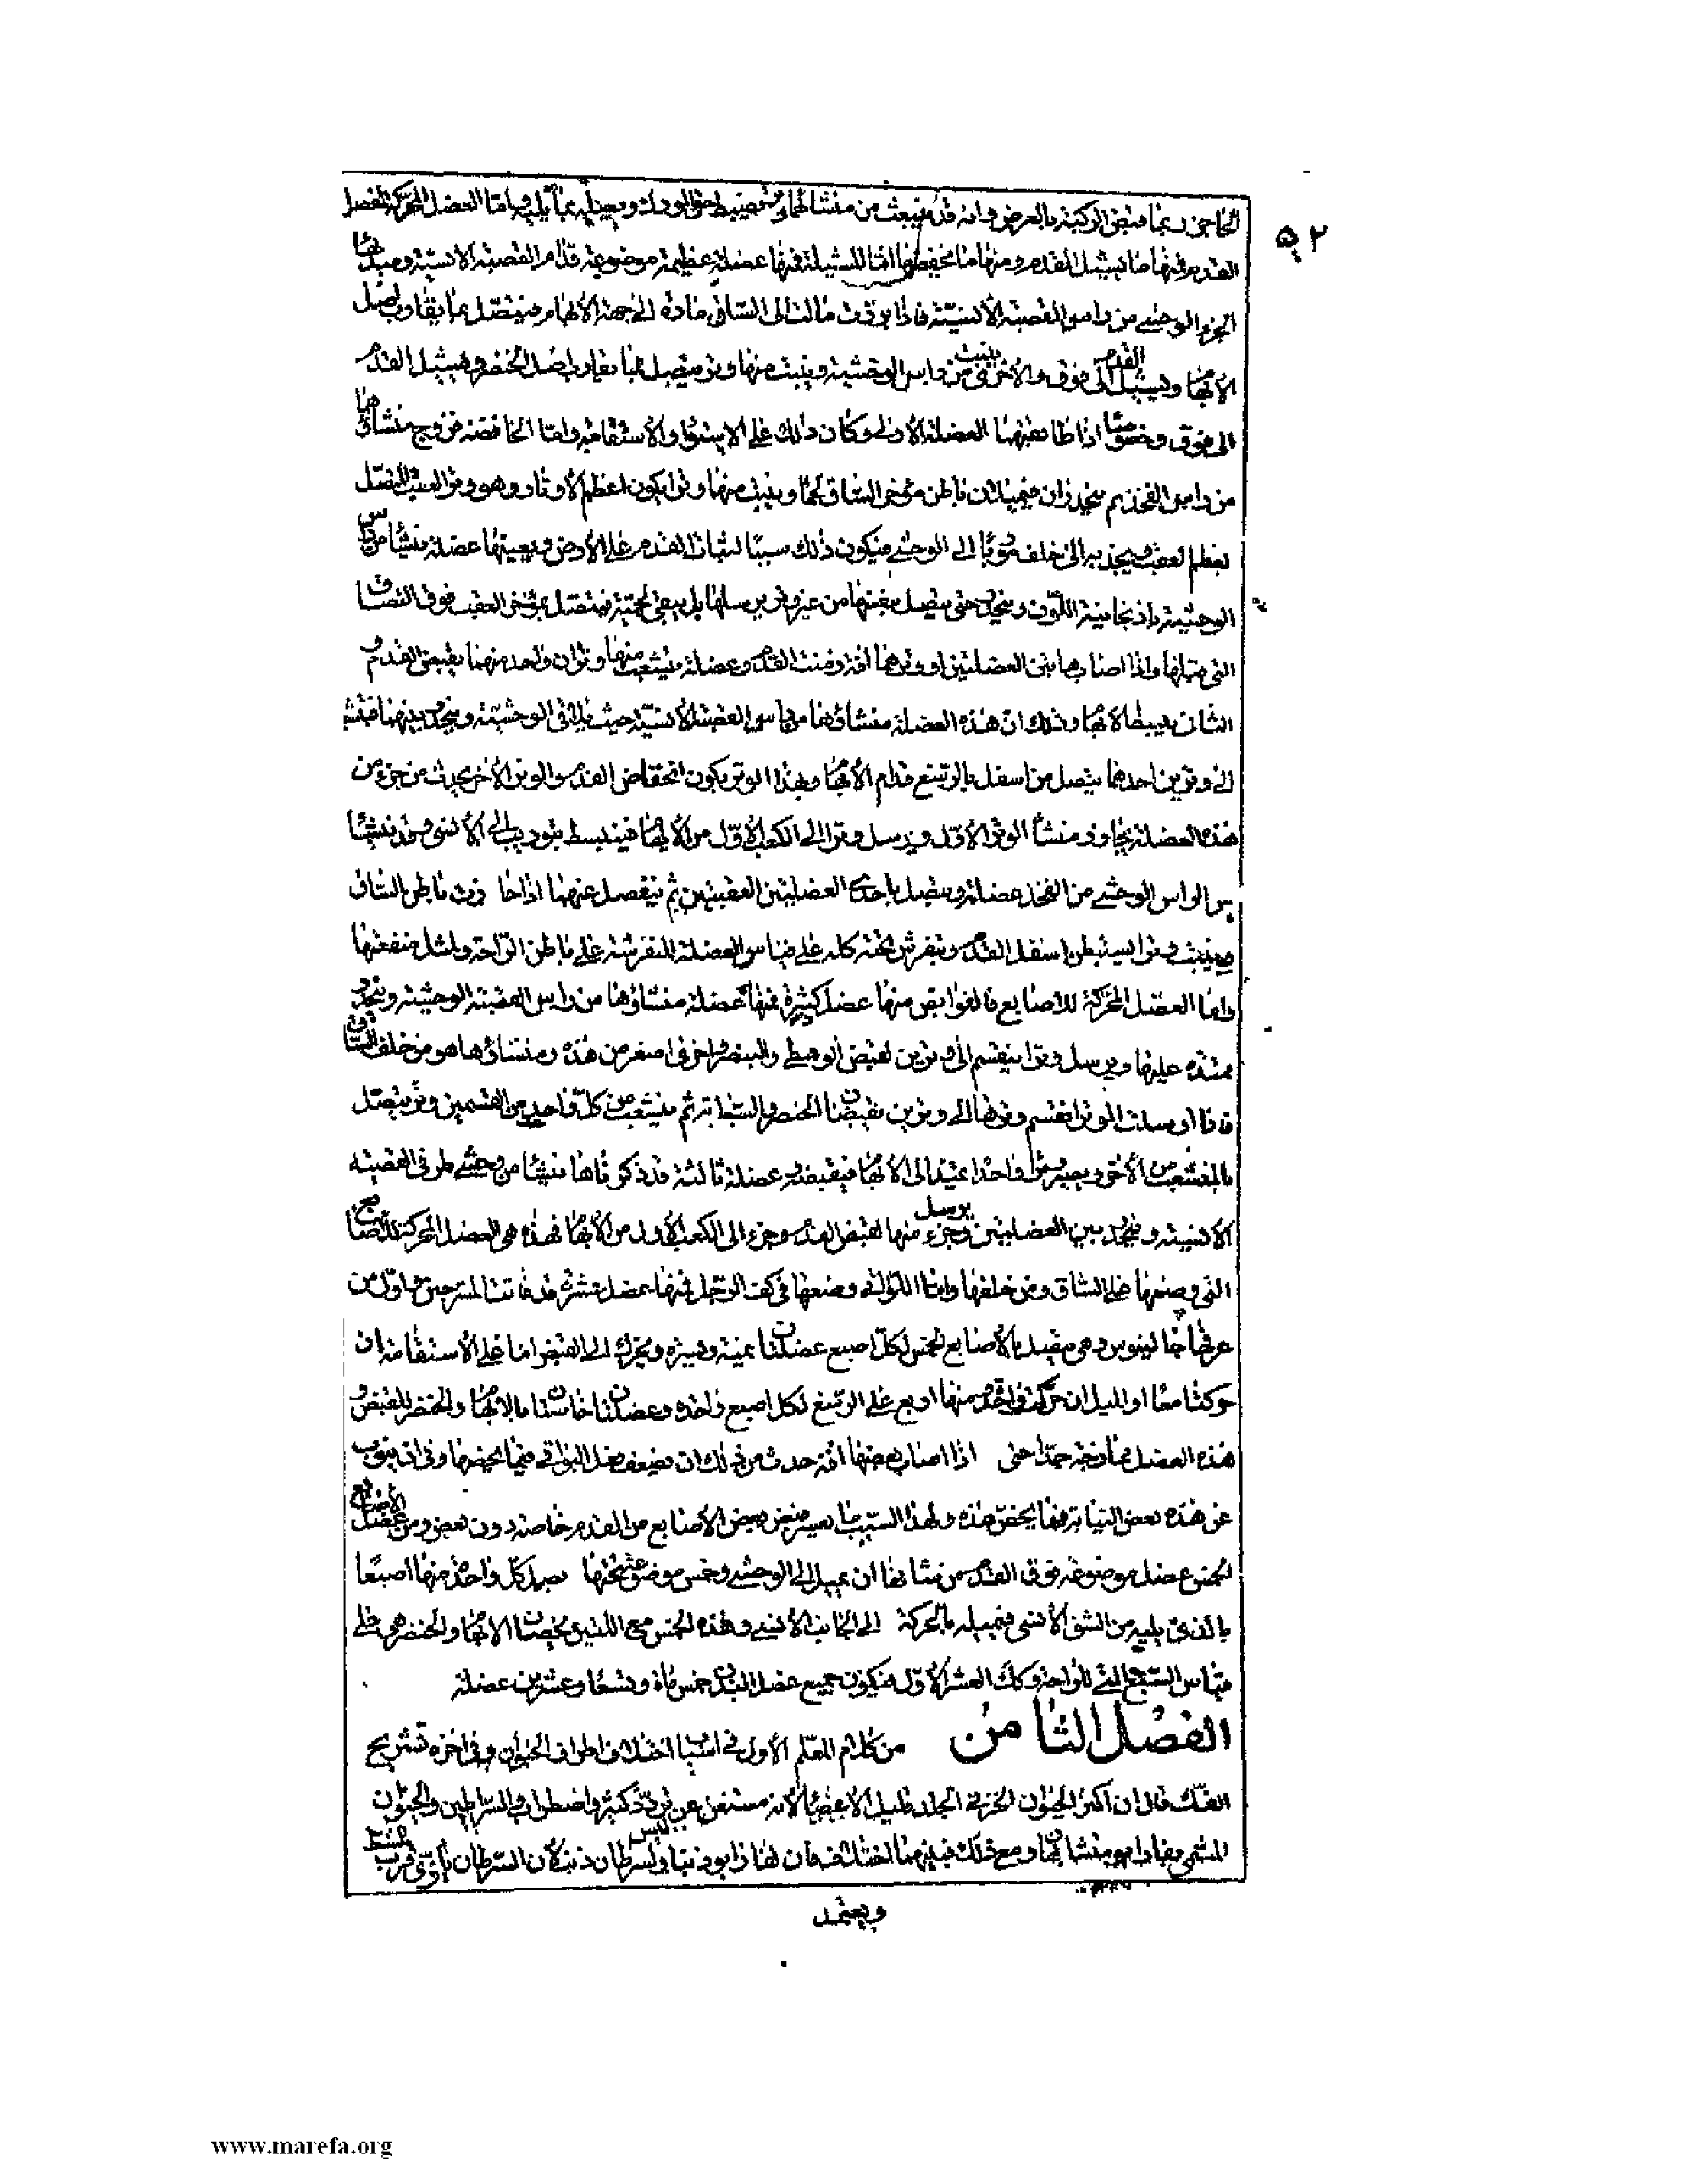 ۵۲
الحاجز ربما قبض الركبة بالعرض وانه قد ينبعث من منشائهما وتر يحيط بحق الورك ويصله بما يليه واما العضل المحركة لمفصل
القدم فمنها ما يشيل القدم ومنها ما يخفضها اما المشيلة فمنها عضلة عظيمة موضوعة قدام القصبة الانسية ومبدأها
الجزء الوحشى من راس القصبة الانسية فاذا برزت مالت الى الساق مارة الى جهة الابهام فيتصل بما يقارب اصل
الابهام ويشيل القدم الى فوق والاخرى ينبت من راس الوحشية وينبت منها وتر يتصل بما يقارب اصل الخنصر ويشيل القدم
الى فوق وخصوصا اذا طابقهما العضلة الاولى وكان ذلك على الاستواء والاستقامة واما الخافضة فزوج منشاؤهما
من راس الفخذ ثم ينحدران فيميلان باطن مؤخر الساق لحما وينبت منها وتر يكون اعظم الاوتار وهو وتر العقب المتصل
بعظم العقب ويجذبه الى خلف موربا الى الوحشى فيكون ذلك سببا لثبات القدم على الارض ويعينها عضلة منشأ من راس
الوحشية باذنجانية اللون وينحدر حتى يتصل بنفسها من غير وتر يرسلها بل يبقى لحمية فيتصل بمؤخر العقب فوق التصاق
التى قبلها واذا اصاب هاتين العضلتين او وترهما افة زمنت القدم وعضلة يتشعب منها وتران واحد منهما يقبض القدم و
الثانى يبسط الابهام وذلك ان هذه العضلة منشاؤها من راس القصبة الانسية حيث يلاقى الوحشية وينحدر بينهما فيتشعب
الى وترين احدهما يتصل من اسفل بالرسغ قدام الابهام وبهذا الوتر يكون انخفاض القدم والوتر الاخر يحدث من جزء من
هذه العضلة يجاوز منشأ الوتر الاول ويرسل وترا الى الكعب الاول من الابهام فيبسط بتوريب الى الانسى وقد ينشأ
من الراس الوحشى من الفخذ عضلة ويتصل باحدى العضلتين العقبيتين ثم ينفصل عنهما اذا حاذت باطن الساق
وينبت وترا يستبطن اسفل القدم وينفرش تحته كله على قياس العضلة المنفرشة على باطن الراحة ولمثل منفعتها
واما العضل المحركة للاصابع فالقوابض منها عضل كثيرة فمنها عضلة منشاؤها من راس القصبة الوحشية وينحدر
ممتدة عليها ويرسل وترا ينقسم الى وترين لقبض الوسطى والبنصر واخرى اصغر من هذه ومنشاؤها هو من خلف الساق
فاذا ارسلت الوتر انقسم وترها الى وترين يقبضان الخنصر والسبابة ثم يتشعب من كل واحد من القسمين وتر يتصل
بالمتشعب من الاخر ويصير وترا واحدا يمتد الى الابهام فيقبضه وعضلة ثالثة قد ذكرناها ينشأ من وحشى طرفى القصبة
الانسية وينحدر بين القصبتين ويرسل جزء منها لقبض القدم وجزء الى الكعب الاول من الابهام فهذه هى العضل المحركة للاصابع
التى وضعها على الساق ومن خلفها واما اللواتى وضعها فى كف الرجل فمنها عضل عشرة قد فاتت المشرحين واول من
عرفها جالينوس وهى يتصل بالاصابع الخمس لكل اصبع عضلتان يمنة ويسرة ويحرك الى القبض اما على الاستقامة ان
حركتا معا او الميل ان حركت واحدة منها اربع على الرسغ لكل اصبع واحدة وعضلتان خاصتان بالابهام والخنصر للقبض و
هذه العضل متمازجة جدا حتى اذا اصاب بعضها افة حدث من ذلك ان يضعف فعل البواقى فيما يخصها وفى ان ينوب
عن هذه بعض النيابة فيما يخص هذه ولهذا السبب ما يعسر قبض بعض الاصابع من القدم خاصة دون بعض ومن عضل الاصابع
خمس عضل موضوعة فوق القدم من شانها ان يميل الى الوحشى وخمس موضوعة تحتها يصل كل واحدة منها اصبعا
بالذى يليه من الشق الانسى فيميله بالحركة الى الجانب الانسى وهذه الخمس مع اللتين يخصان الابهام والخنصر هى على
قياس السبع التى للراحة وكذلك العشر الاول فيكون جميع عضل البدن خمس مائة وتسعا وعشرين عضلة
الفصل الثامن من كلام المعلم الاول فى اسباب اختلاف اطراف الحيوان وفى اخره تشريح
الفك قال ان اكثر الحيوان الخزفى الجلد قليل الاعضاء لانه مستغن عن تردد كثير واضطراب والسراطين والحيوان
المسمى فاراموا متشابهان ومع ذلك فبينهما اختلاف فان لفاراموا ذنبا وليس للسرطان ذنب لان السرطان ياوى قرب الشط
ويعتمد
www.marefa.org